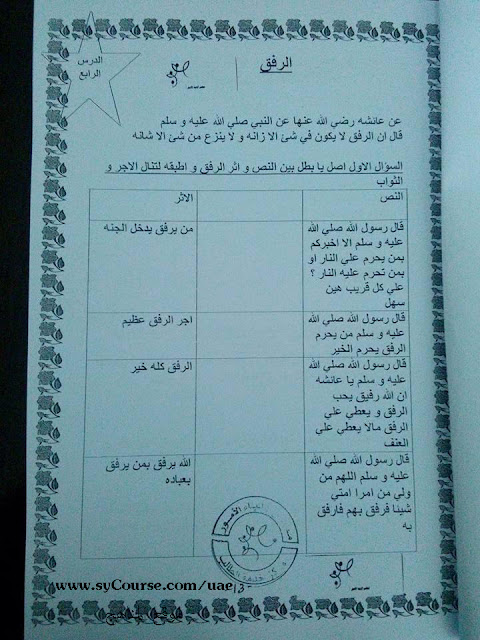 الدرس
الرابع
الرفق
عن عائشه رضي الله عنها عن النبي صلي الله عليه و سلم
قال ان الرفق لا يكون في شئ الا زانه و لا ينزع من شئ الا شانه
السؤال الاول اصل يا بطل بين النص و اثر الرفق و اطبقه لتنال الاجر و
الثواب
النص
الاثر
قال رسول الله صلي الله
عليه و سلم الا اخبركم
بمن يحرم علي النار او
بمن تحرم عليه النار ؟
علي كل قريب هين
سهل
من يرفق يدخل الجنه
قال رسول الله صلي الله
عليه و سلم من يحرم
الرفق يحرم الخير
اجر الرفق عظيم
قال رسول الله صلي الله
عليه و سلم يا عائشه
ان الله رفيق يحب
الرفق و يعطي علي
الرفق مالا يعطي علي
العنف
الرفق كله خير
قال رسول الله صلي الله
عليه و سلم اللهم من
ولي من امرا امتي
شيئا فرفق بهم فارفق
به
الله يرفق بمن يرفق
بعباده
www.syCourse.com/uae